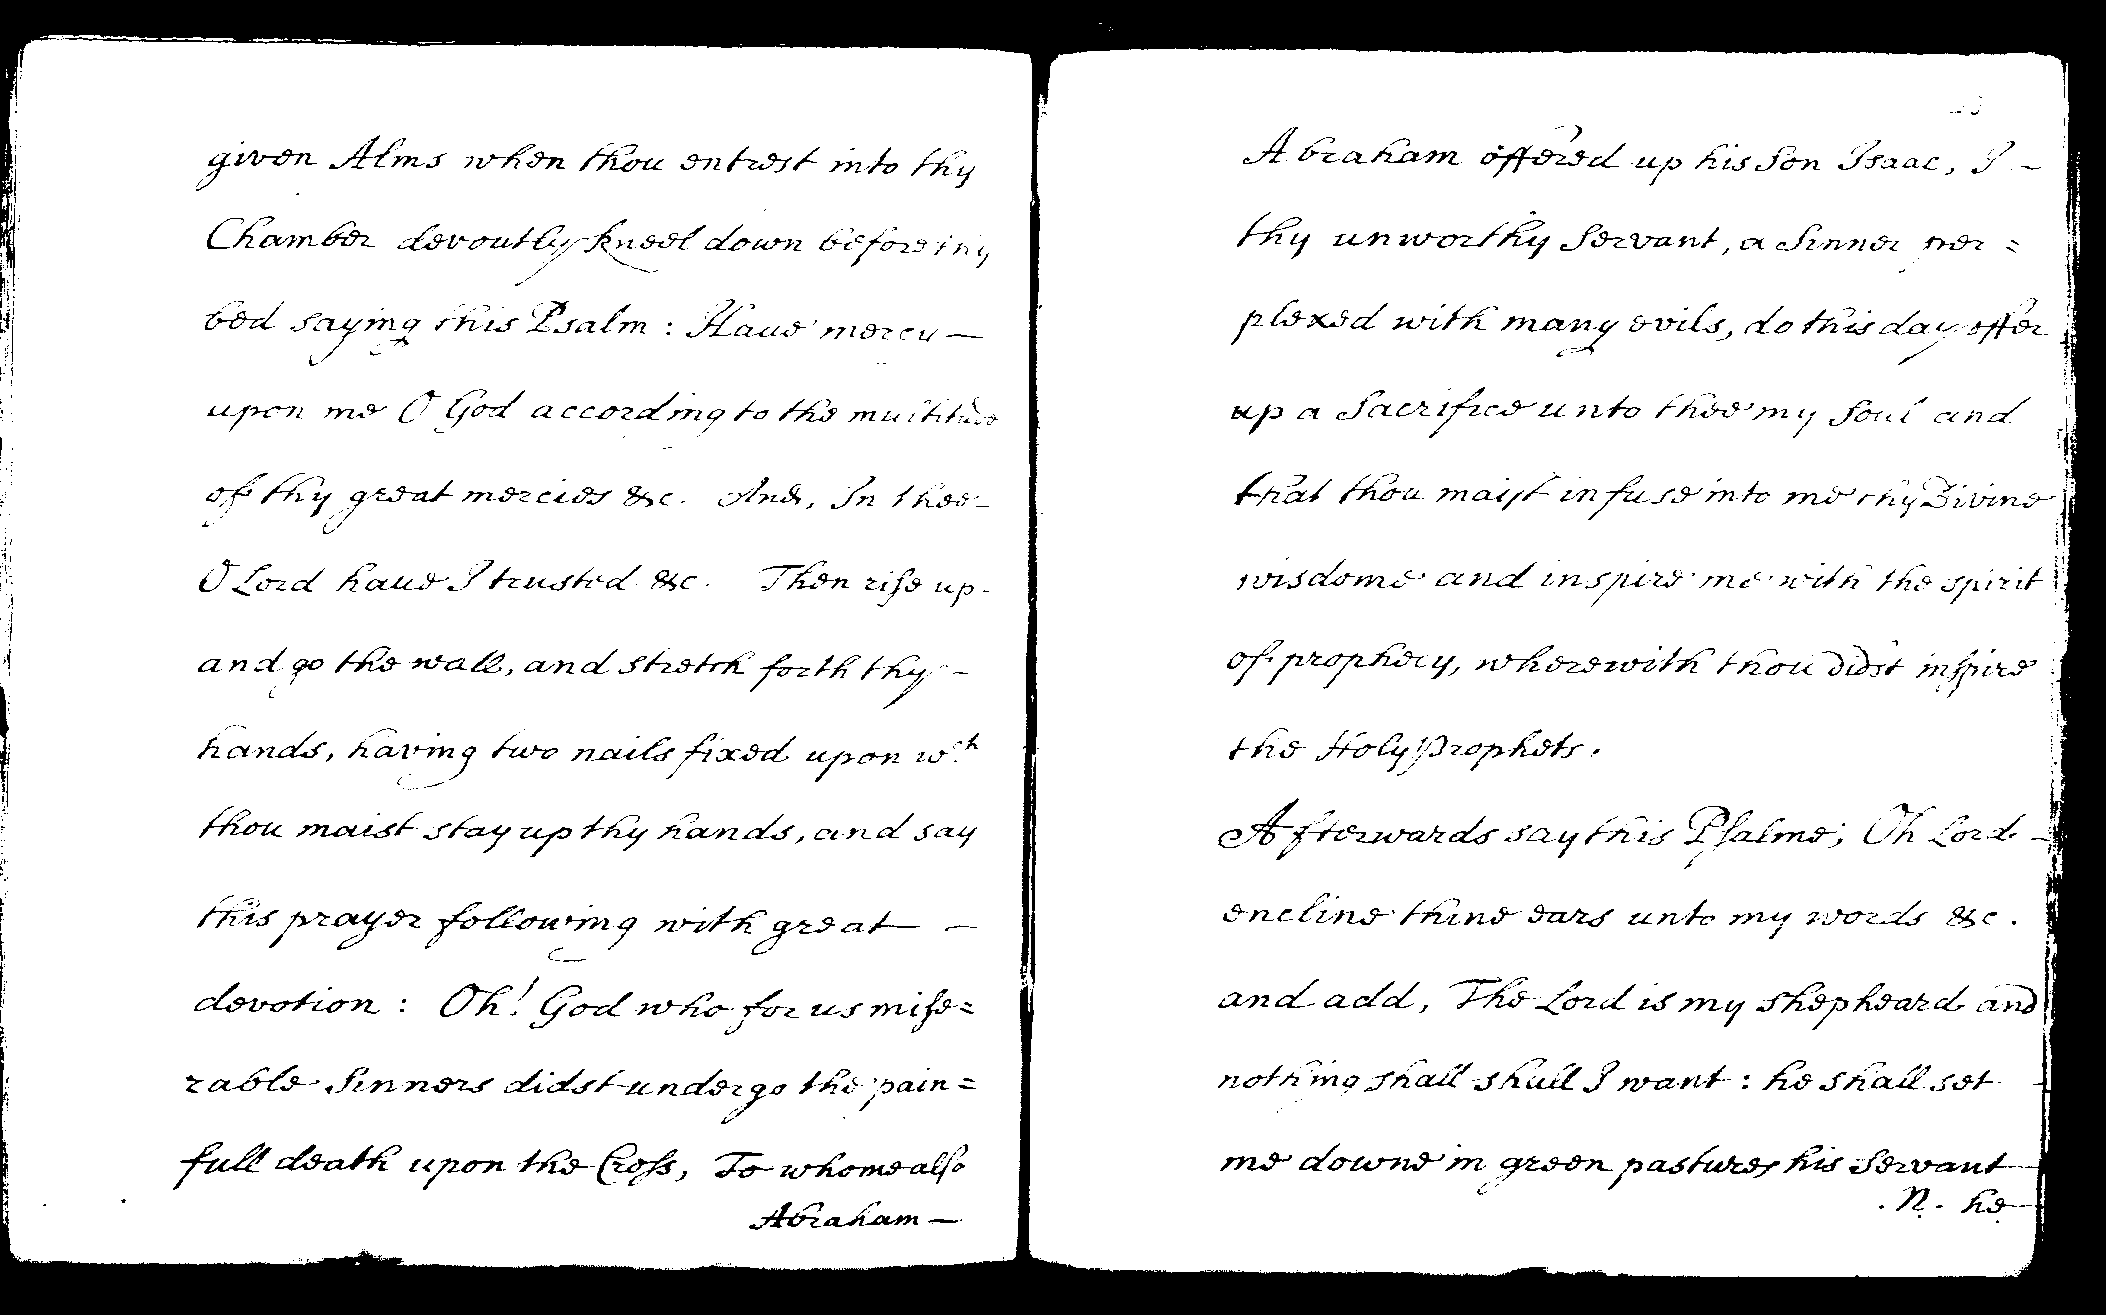 given Alms when thou entrest into thy
Chamber devoutly kneel down before thy
bed saying this Psalm : Haue mercy —
upon me O God according to the multitude
of thy great mercies &c. And, In thee -
O Lord haue I trusted &c. Then rise up -
and go the wall, and stretch forth thy -
hands, having two nails fixed upon wch
thou maist stay up thy hands, and say
this prayer following with great —
devotion : Oh! God who for us mise=
rable Sinners didst undergo the pain=
full death upon the Cross, To whome also
Abraham —
Abraham offered up his Son Isaac, I —
thy unworthy Servant, a Sinner per=
plexed with many evils, do this day offer
up a Sacrifice unto thee my Soul and
that thou mayst infuse into me thy Divine
wisdome and inspire me with the spirit
of prophecy, wherewith thou didst inspire
the Holy Prophets.
Afterwards say this Psalme; Oh Lord —
encline thine ears unto my words &c.
and add, The Lord is my shepheard and
nothing shall shull I want : he shall set
me downe in green pastures his Servant
.N. he